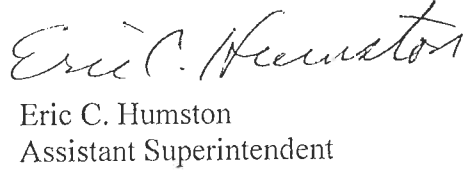 Eric C. Humston
Eric C. Humston
Assistant Superintendent